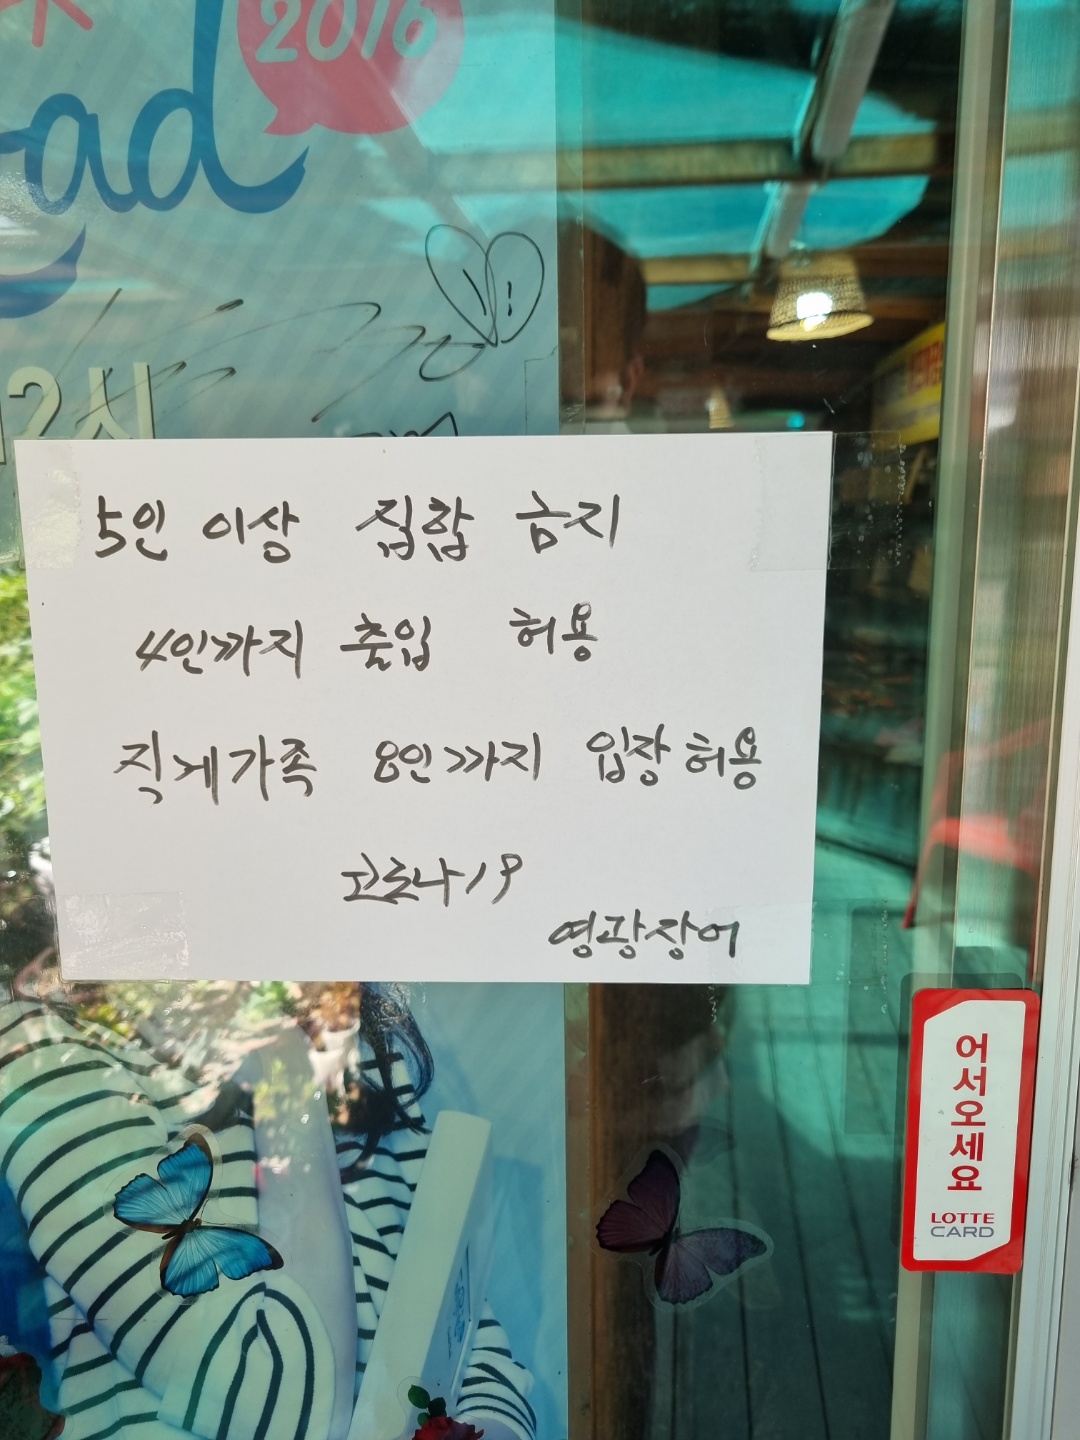 2016
ad
2시
5인 이상 집합 금지
4인까지 출입 허용
직계가족 8인까지 입장허용
코로나19
영광장어
어서오세요
LOTTE
CARD